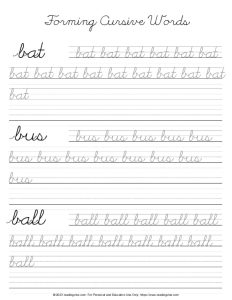 Forming Cursive Words
bat bat bat bat bat bat bat
bat bat bat bat bat bat bat bat bat
bat
bus bus bus bus bus bus
bus bus bus bus bus bus bus
bus
ball ball ball ball ball ball
ball ball ball ball ball ball ball
ball
For Personal and Education Use Only.